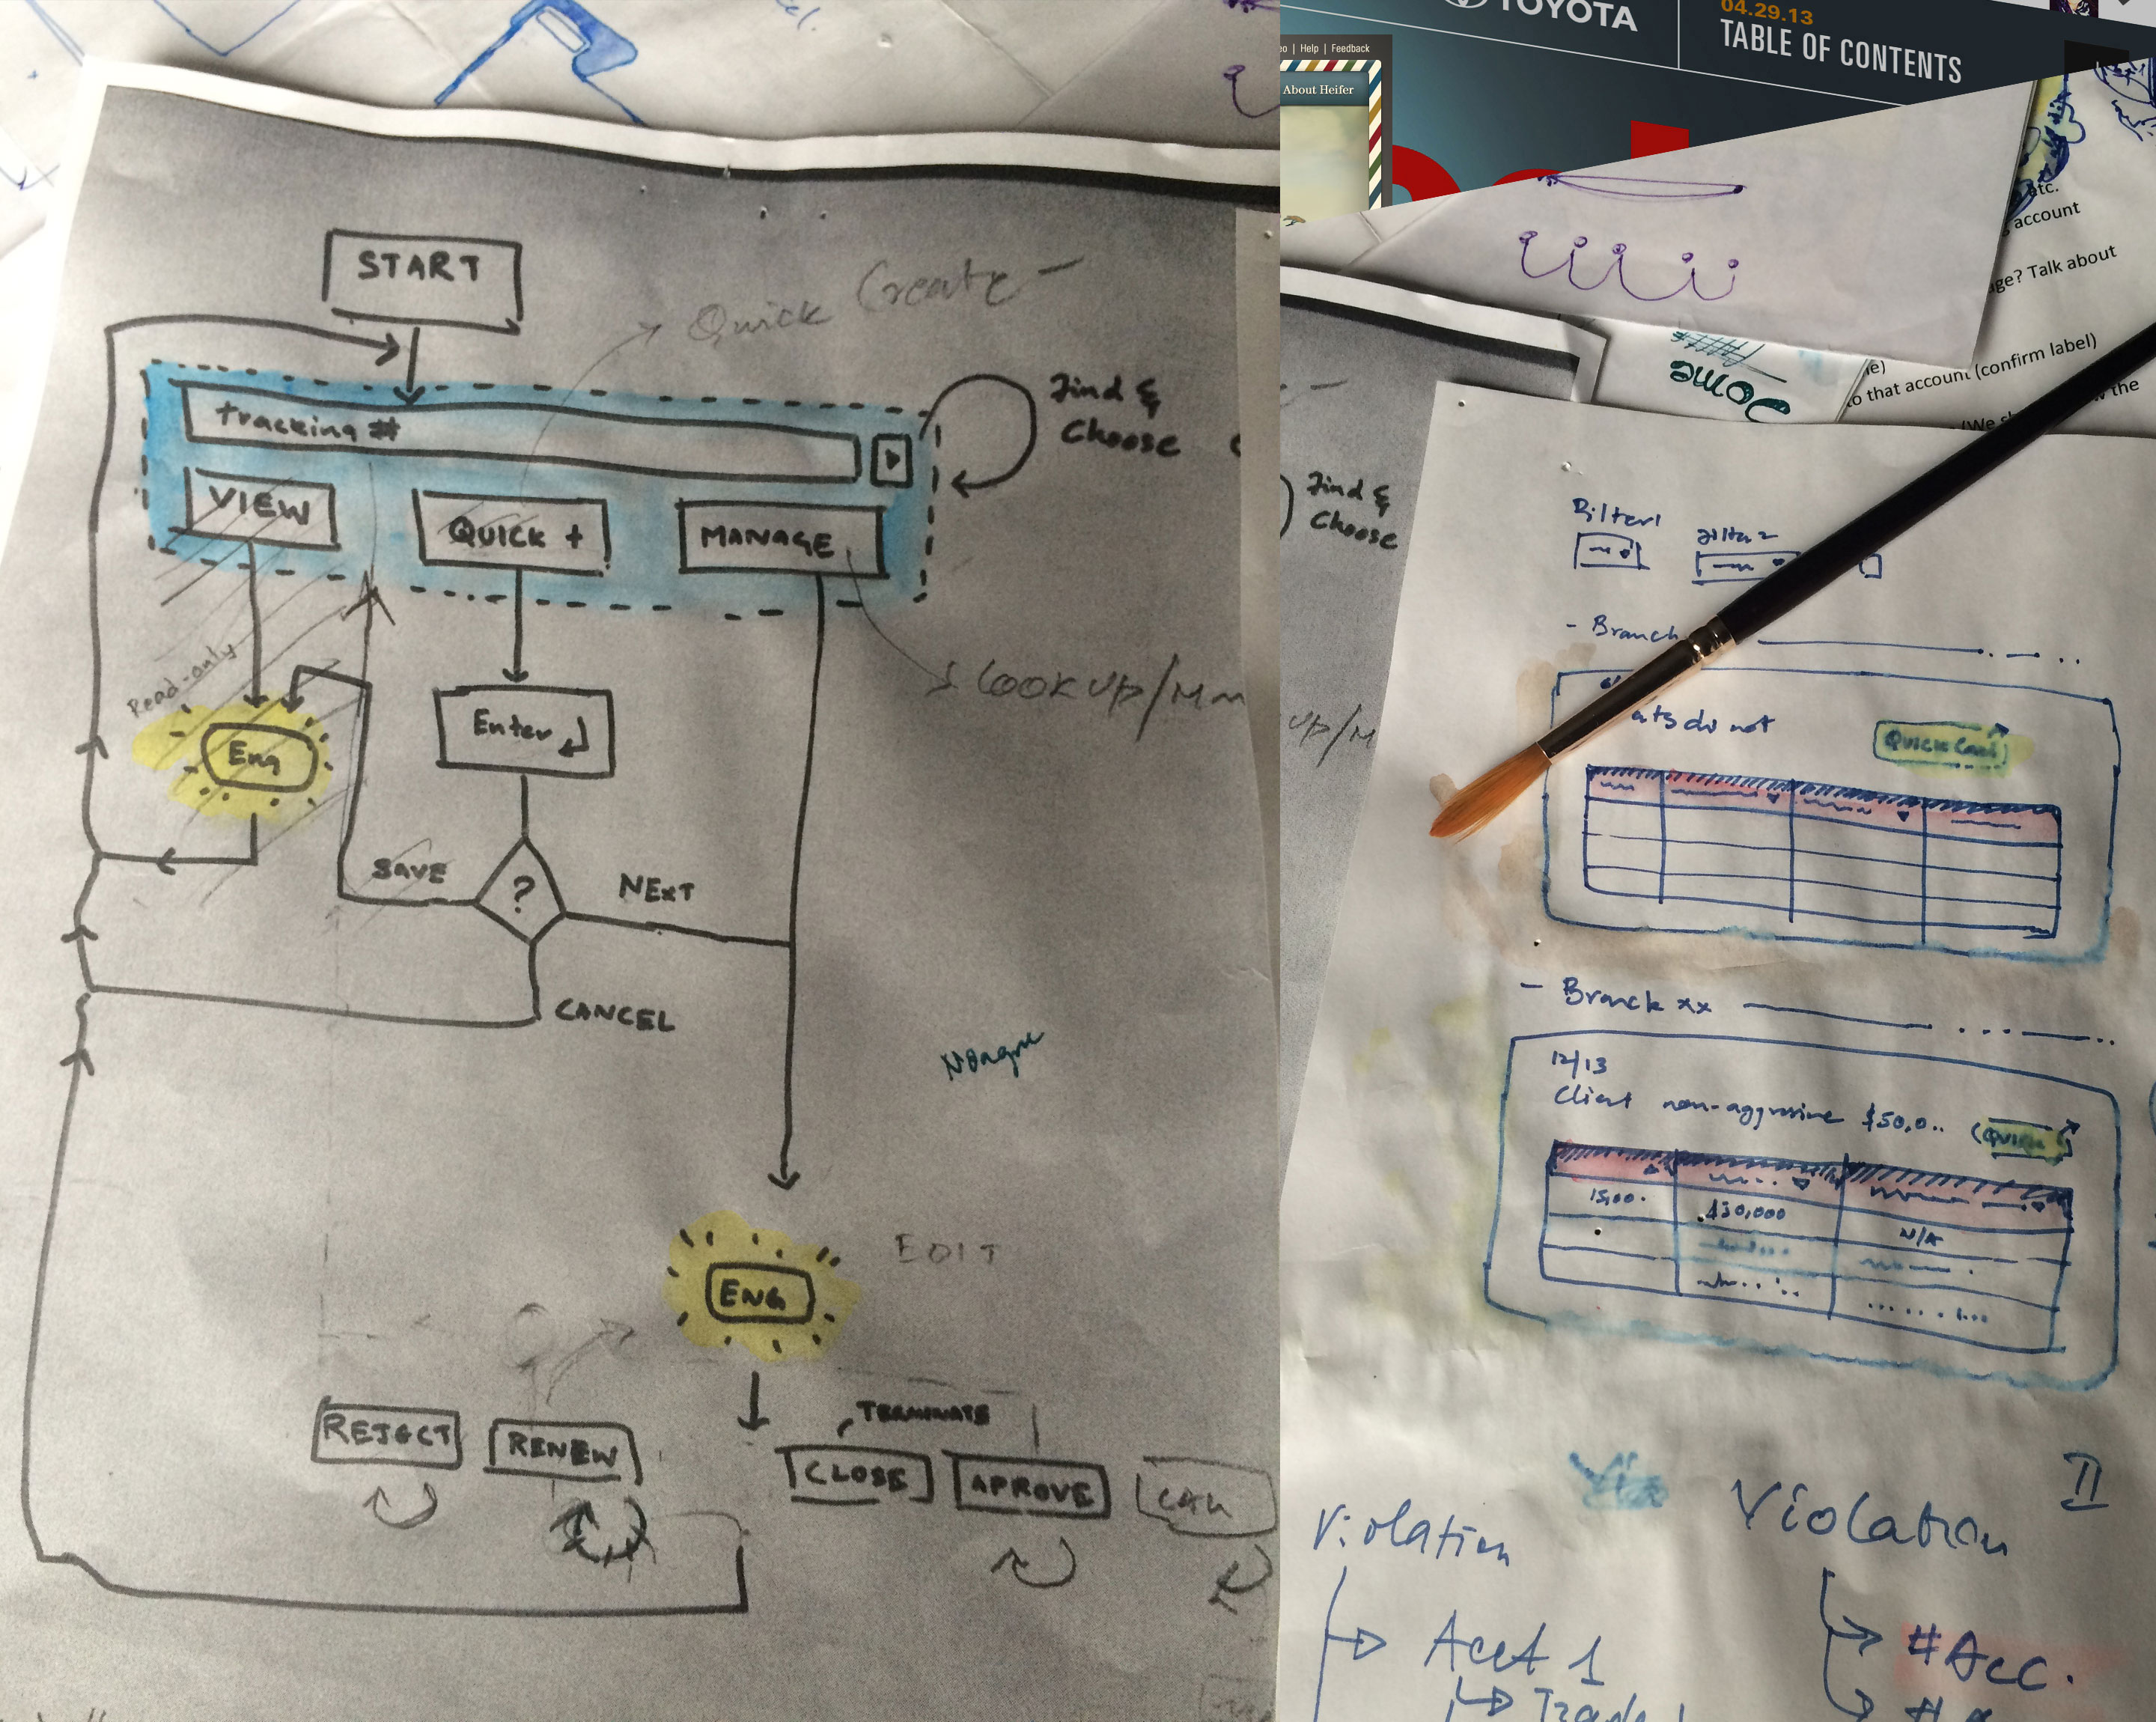 START
Quick Create -
tracking #
Find &
Choose
VIEW
QUICK +
MANAGE
Read-only
LOOK UP/
Eng
Enter
SAVE
?
NEXT
CANCEL
ENG
EDIT
TERMINATE
REJECT
RENEW
CLOSE
APROVE
TOYOTA
04.29.13
TABLE OF CONTENTS
| Help | Feedback
About Heifer
etc.
account
ge? Talk about
that account (confirm label)
(We
the
Home
Find &
Choose
UP/M
Filter1
filter 2
- Branch
do not
Quick
- Branch xx
12/13
Client non-aggressive $50,0..
Quick
15,00.
$30,000
N/A
Violation
Violation II
Acct 1
Trade
# Acc.
#